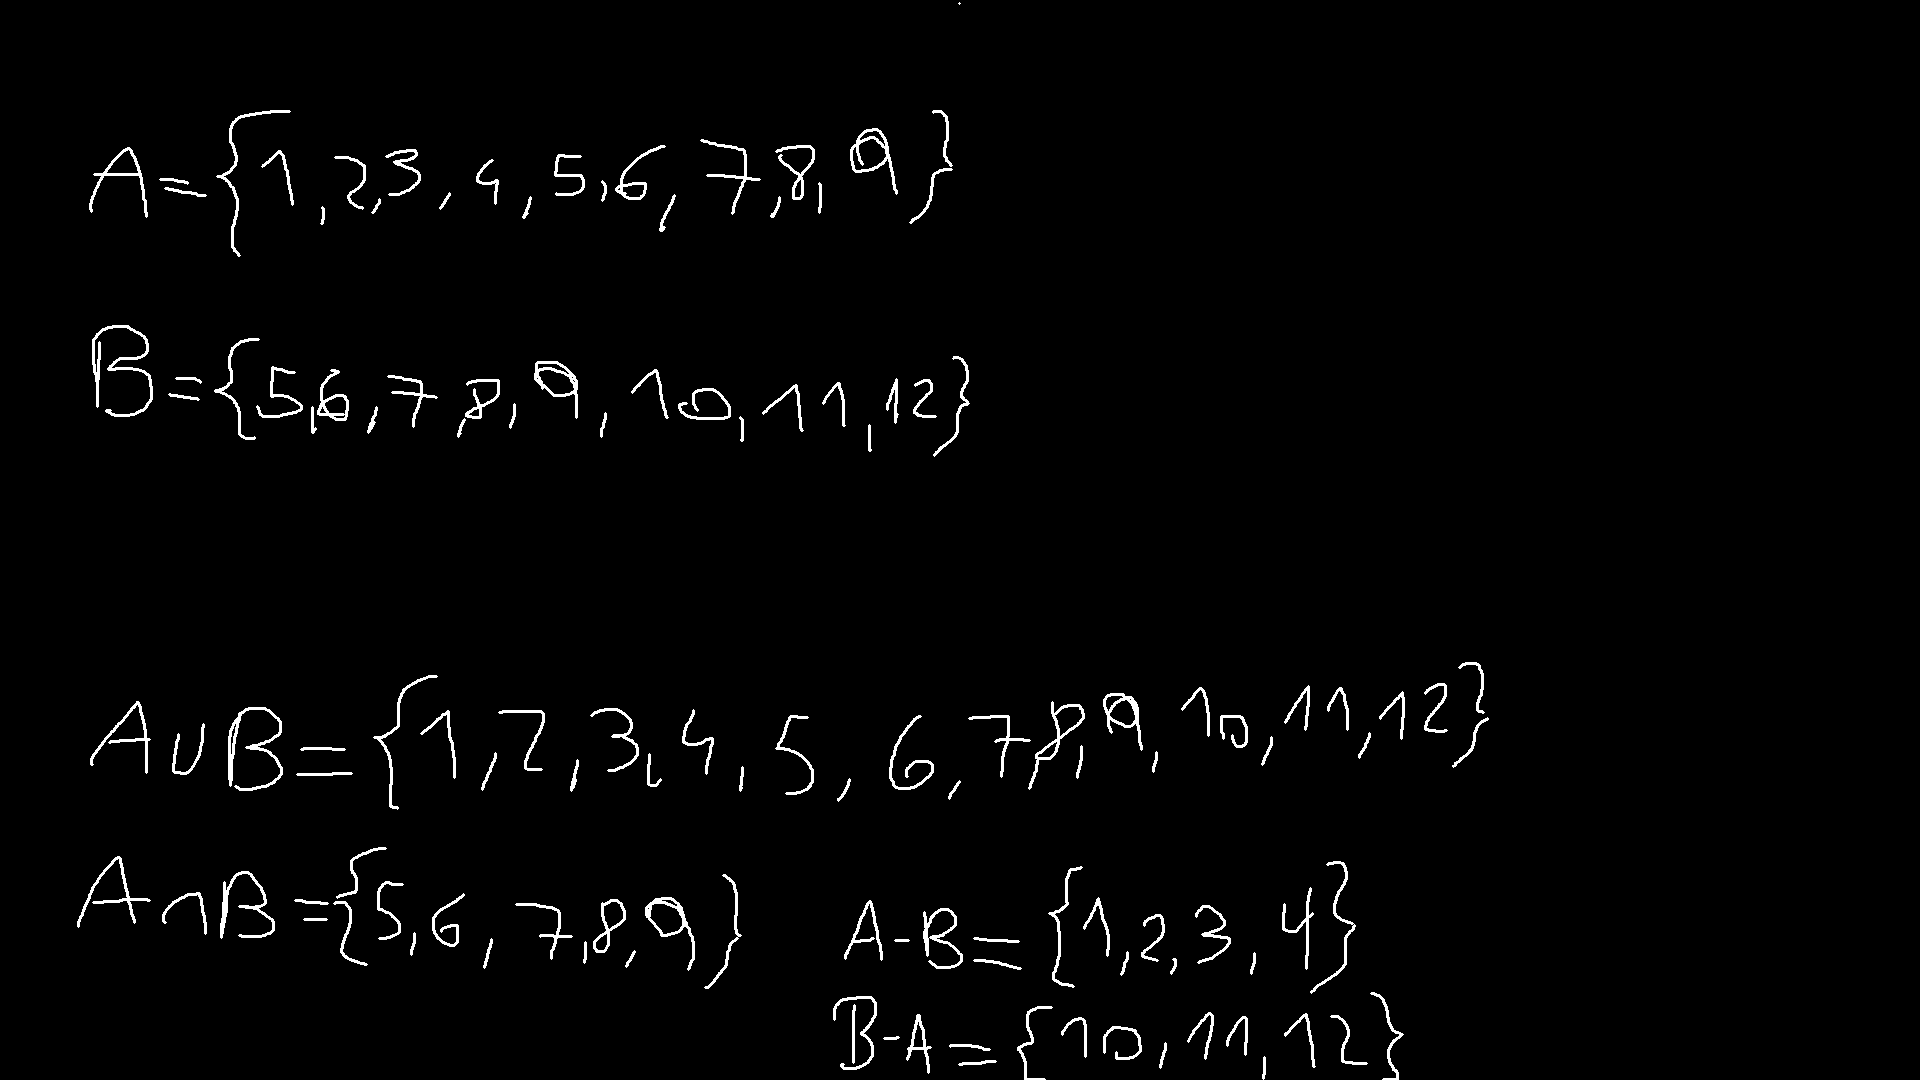 A={1,2,3,4,5,6,7,8,9}
B={5,6,7,8,9,10,11,12}
A∪B={1,2,3,4,5,6,7,8,9,10,11,12}
A∩B={5,6,7,8,9}
A-B={1,2,3,4}
B-A={10,11,12}